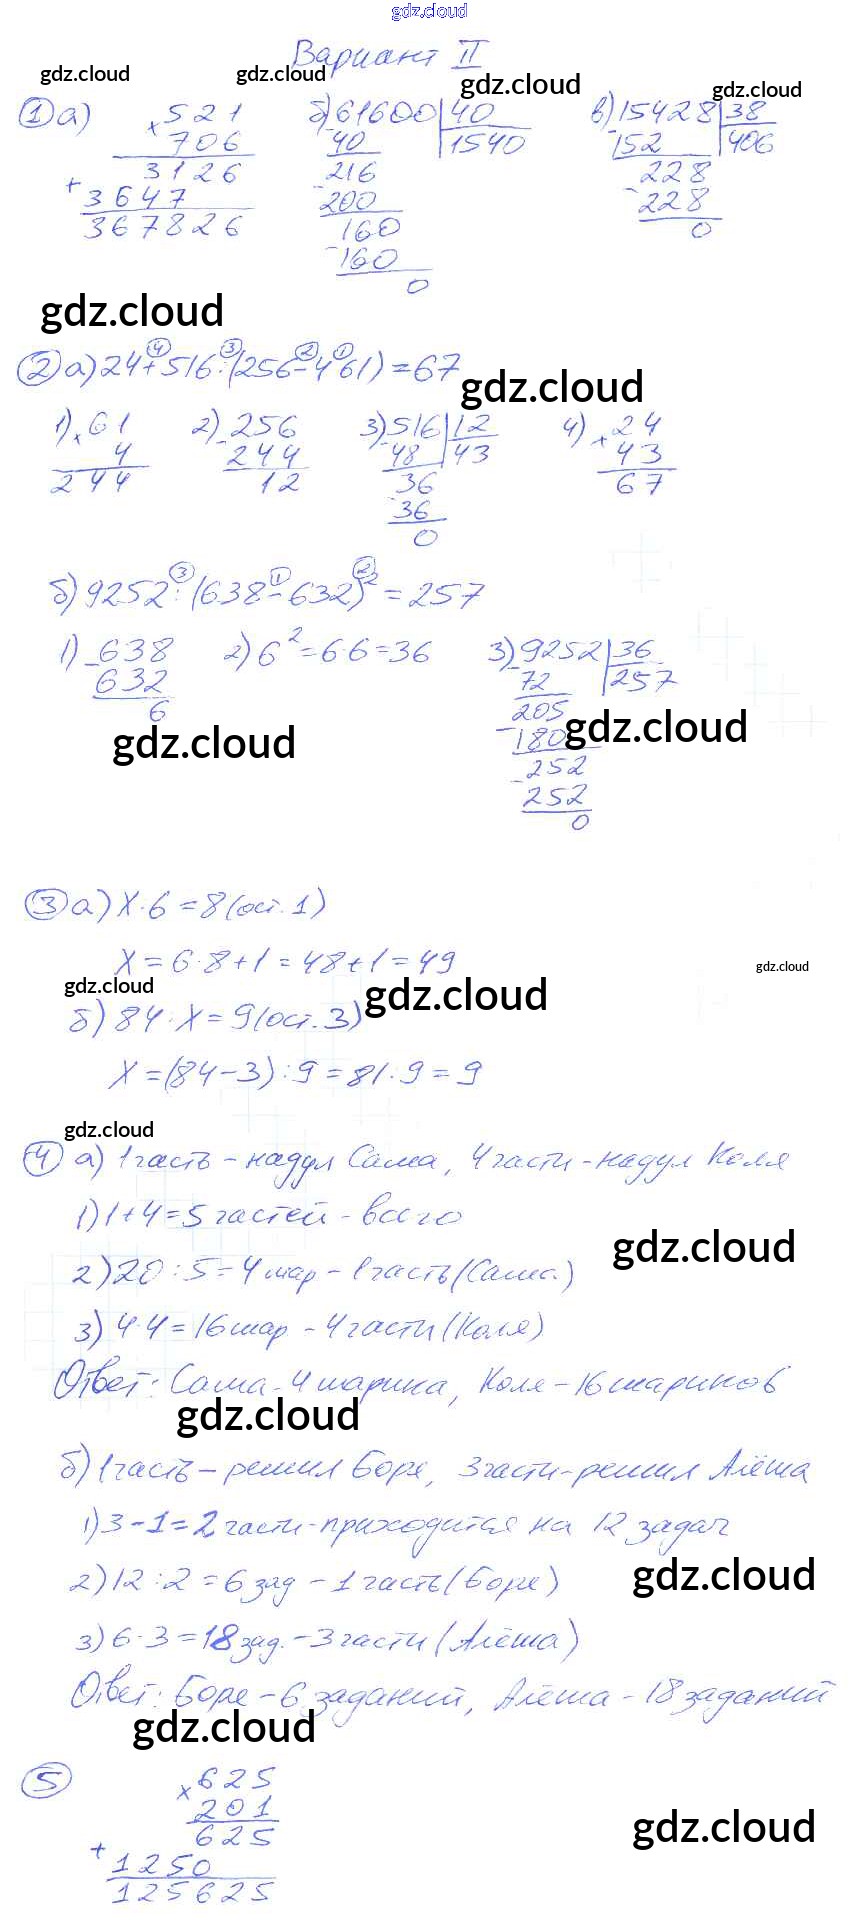 gdz.cloud
Вариант II
gdz.cloud gdz.cloud gdz.cloud gdz.cloud
1 а) × 521 б) 61600 | 40 в) 15428 | 38
706 - 40 1540 - 152 406
3126 216 228
+ 3647 - 200 - 228
367826 160 0
- 160
0
gdz.cloud
2 а) 24 + 516 : (256 - 4 · 61) = 67
4 3 2 1
gdz.cloud
1) × 61 2) - 256 3) 516 | 12 4) × 24
4 244 - 48 43 43
244 12 36 67
- 36
0
б) 9252 : (638 - 632)² = 257
3 1 2
1) - 638 2) 6² = 6·6 = 36 3) 9252 | 36
632 - 72 257
6 205
gdz.cloud - 180 gdz.cloud
252
- 252
0
3 а) X · 6 = 8 (ост. 1)
X = 6·8+1 = 48+1 = 49
gdz.cloud gdz.cloud gdz.cloud
б) 84 : X = 9 (ост. 3)
X = (84 - 3) : 9 = 81 : 9 = 9
gdz.cloud
4 а) 1 часть - надул Саша, 4 части - надул Коля
1) 1 + 4 = 5 частей - всего
gdz.cloud
2) 20 : 5 = 4 шар - 1 часть (Саша)
3) 4·4 = 16 шар - 4 части (Коля)
Ответ: Саша - 4 шарика, Коля - 16 шариков
gdz.cloud
б) 1 часть - решил Боря, 3 части - решил Алёша
1) 3 - 1 = 2 части - приходится на 12 задач
2) 12 : 2 = 6 зад - 1 часть (Боре)
gdz.cloud
3) 6 · 3 = 18 зад. - 3 части (Алёша)
Ответ: Боре - 6 заданий, Алёша - 18 заданий
gdz.cloud
5 × 625
201
625
gdz.cloud
+ 1250
125625